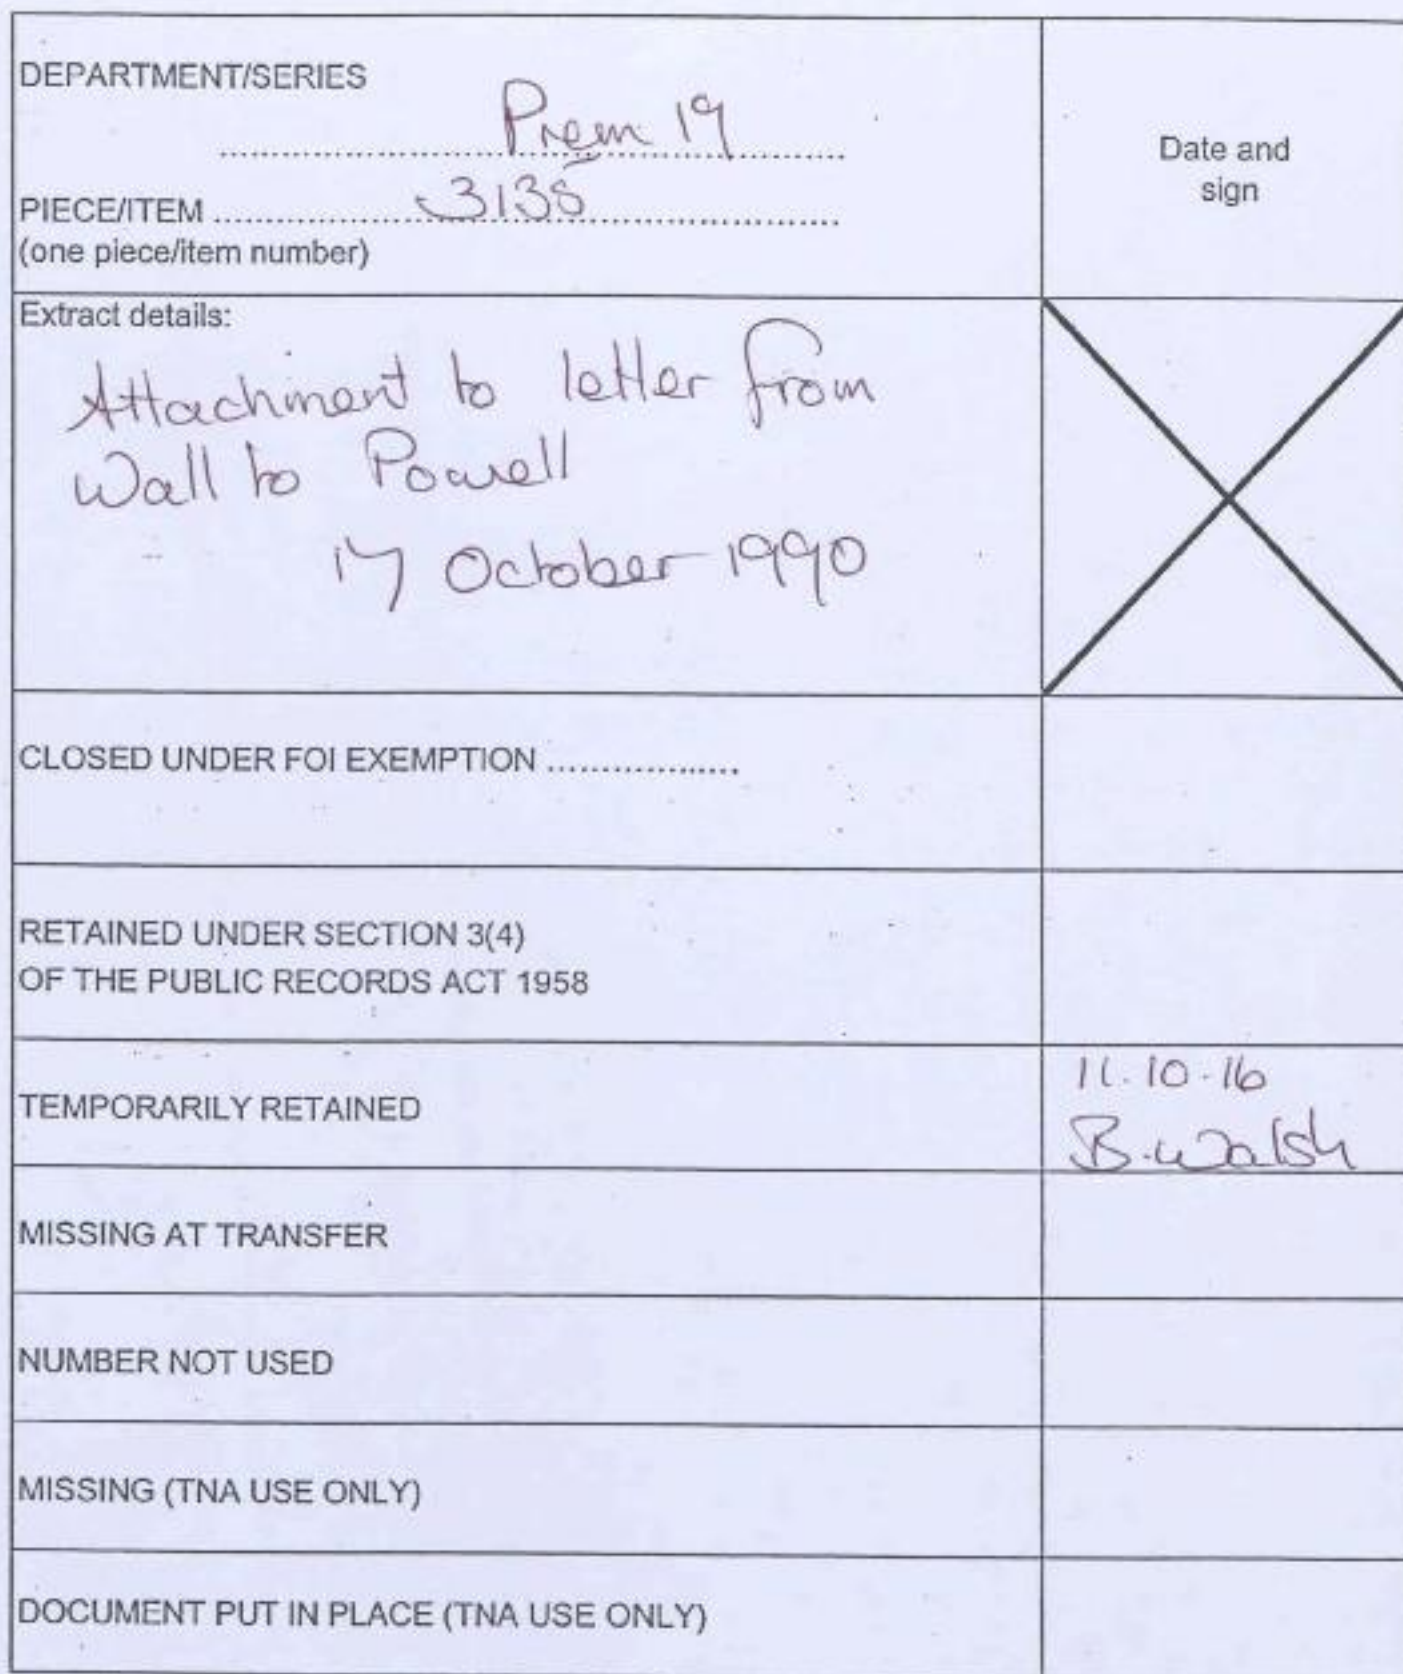 DEPARTMENT/SERIES
Prem 19
Date and
sign
PIECE/ITEM 3135
(one piece/item number)
Extract details:
Attachment to letter from
Wall to Powell
17 October 1990
CLOSED UNDER FOI EXEMPTION ..................
RETAINED UNDER SECTION 3(4)
OF THE PUBLIC RECORDS ACT 1958
TEMPORARILY RETAINED
11.10.16
B.Walsh
MISSING AT TRANSFER
NUMBER NOT USED
MISSING (TNA USE ONLY)
DOCUMENT PUT IN PLACE (TNA USE ONLY)